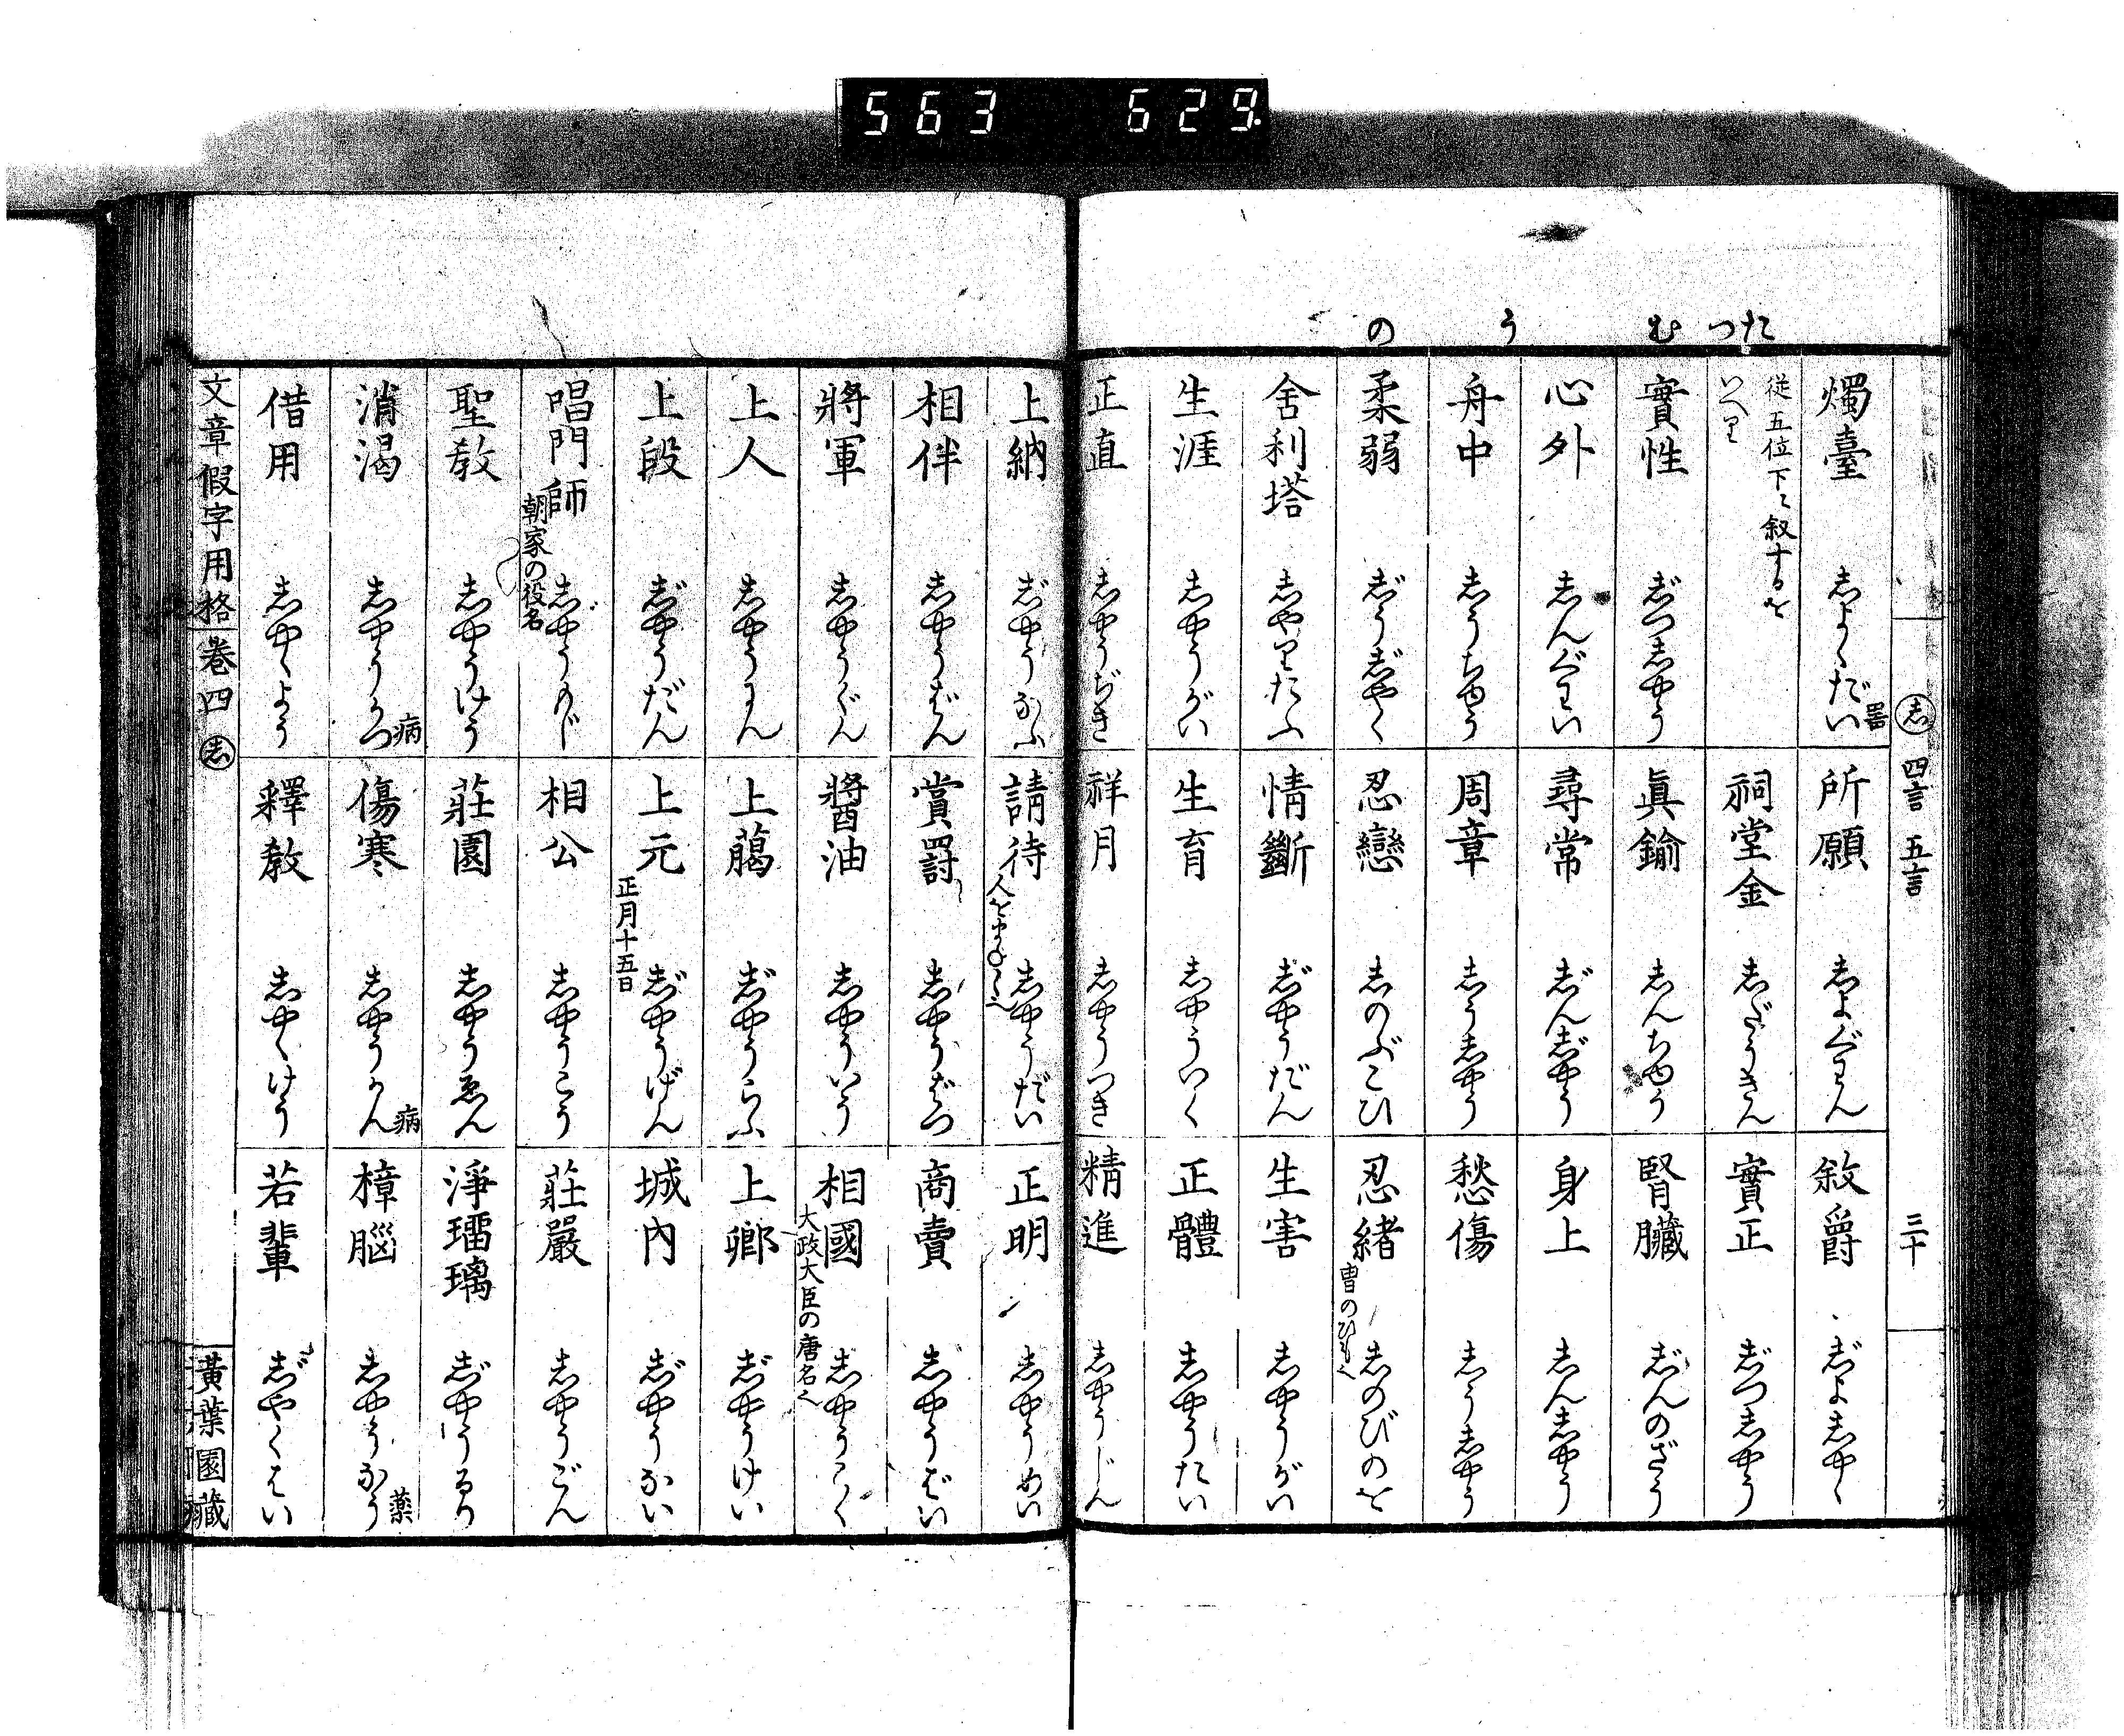 563 629.
たつ む う の
㋛ 四言 五言 三十
燭臺 しよくだい 器
所願 しよぐわん
敘爵 じよしやく
従五位下に叙するを
いへり
祠堂金 しだうきん
實正 じつしやう
實性 じつしやう
眞鍮 しんちゆう
腎臟 じんのざう
心外 しんぐわい
尋常 じんじやう
身上 しんしやう
舟中 しうちゆう
周章 しうしやう
愁傷 しうしやう
柔弱 じうじやく
忍戀 しのぶこひ
忍緒 しのびのを
冑のひも也
舍利塔 しやりたふ
情斷 じやうだん
生害 しやうがい
生涯 しやうがい
生育 しやういく
正體 しやうたい
正直 しやうぢき
祥月 しやうつき
精進 しやうじん
上納 じやうなふ
請待 しやうだい
正明 しやうめい
相伴 しやうばん
賞罰 しやうばつ
商賣 しやうばい
將軍 しやうぐん
醬油 しやういう
相國 しやうこく
大政大臣の唐名也
上人 しやうにん
上﨟 じやうらふ
上卿 じやうけい
上段 じやうだん
上元 じやうげん
正月十五日
城内 じやうない
唱門師 しやうもじ
朝家の役名
相公 しやうこう
莊嚴 しやうごん
聖教 しやうけう
莊園 しやうゑん
淨瑠璃 じやうるり
消渇 しやうかつ 病
傷寒 しやうかん 病
樟腦 しやうなう 薬
借用 しやくよう
釋教 しやくけう
若輩 じやくはい
文章假字用格 巻四 ㋛
黄葉園藏